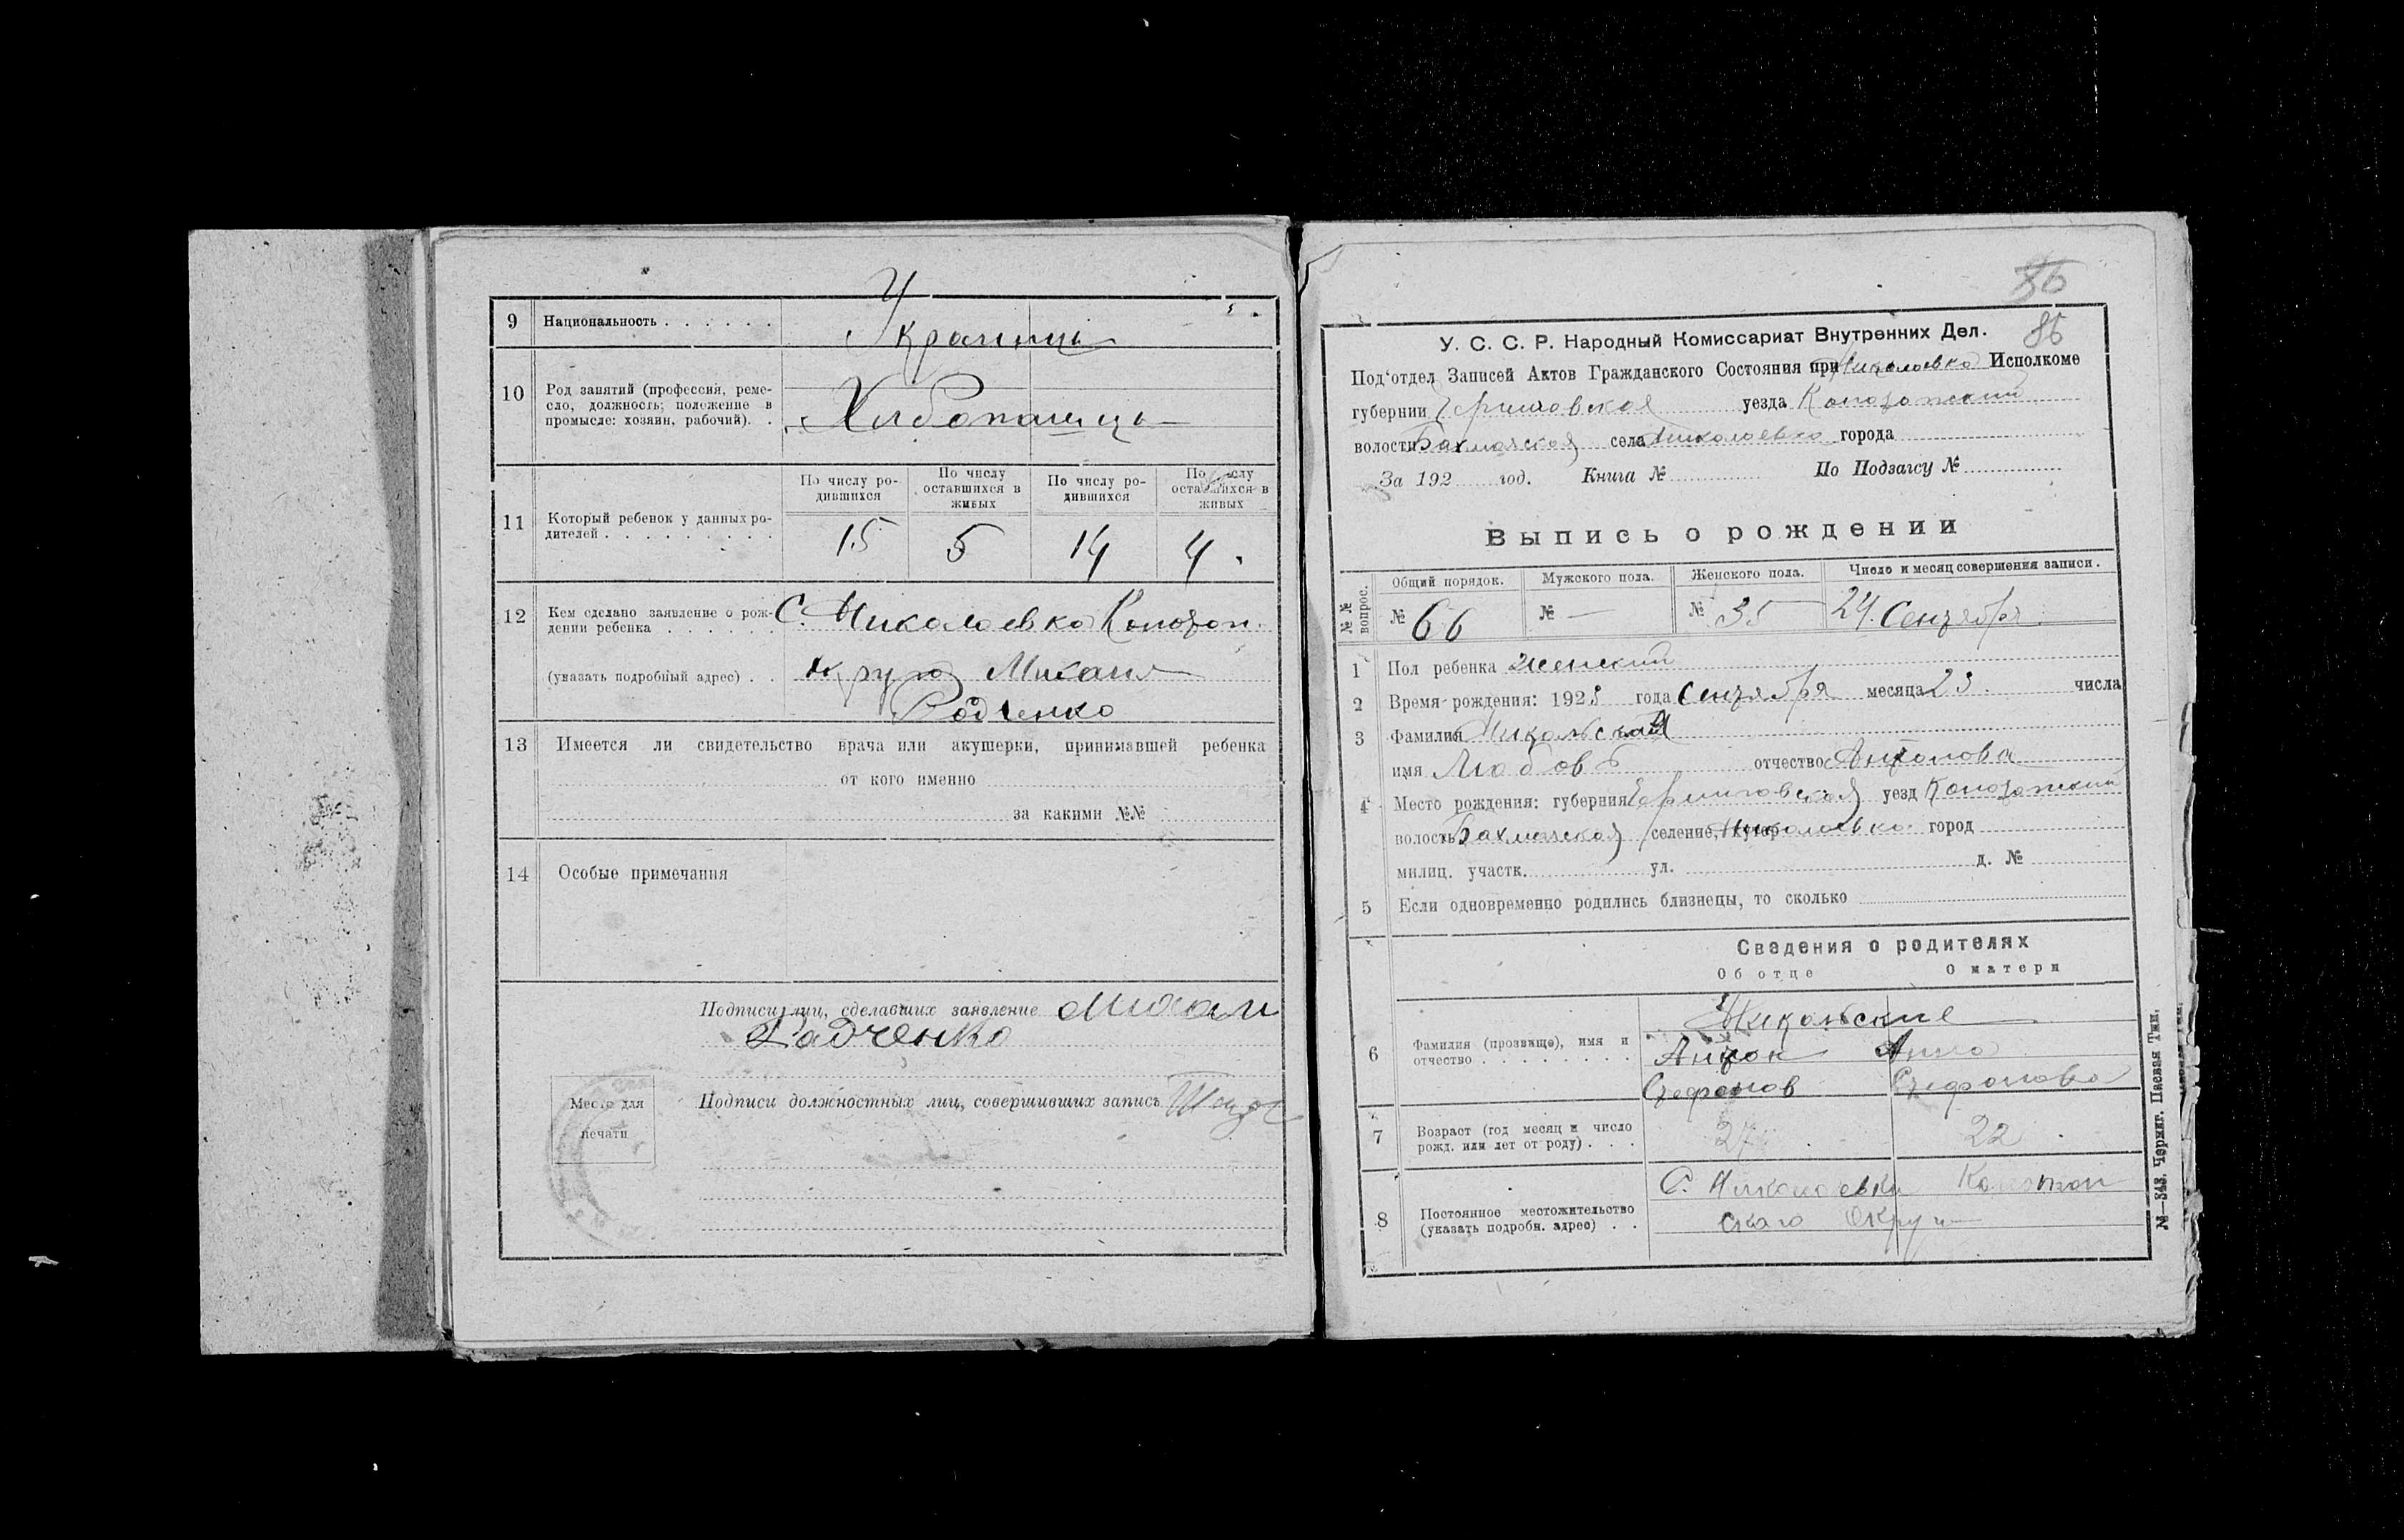 9 Национальность . . . . . . Украинцы
10 Род занятий (профессия, реме-
сло, должность; положение в
промысле: хозяин, рабочий). . Хлебопашцы
11 Который ребенок у данных ро-
дителей . . . . . . . . .
По числу ро-
дившихся
По числу
оставшихся в
живых
По числу ро-
дившихся
По числу
оставшихся в
живых
15 5 14 4.
12 Кем сделано заявление о рож-
дении ребенка . . . . . . С. Николаевка Конотоп.
(указать подробный адрес) . . округа Михаил
Радченко
13 Имеется ли свидетельство врача или акушерки, принимавшей ребенка
от кого именно
за какими №№
14 Особые примечания
Подписи лиц, сделавших заявление Михаил
Радченко
Место для
печати
Подписи должностных лиц, совершивших запись
86
86
У. С. С. Р. Народный Комиссариат Внутренних Дел.
Под‘отдел Записей Актов Гражданского Состояния при Николаевко Исполкоме
губернии Черниговская уезда Конотопский
волости Бахмачская села Николаевка города
За 192 год. Книга № По Подзагсу №
Выпись о рождении
№№ вопрос.
Общий порядок. Мужского пола. Женского пола. Число и месяц совершения записи.
№ 66 № — № 35 24. Сентября.
1 Пол ребенка женский
2 Время рождения: 1923 года Сентября месяца 23. числа
3 Фамилия Никольская
имя Любовь отчество Антонова
4 Место рождения: губерния Черниговская уезд Конотопский
волость Бахмачская селение, хутор Николаевка город
милиц. участк. ул. д. №
5 Если одновременно родились близнецы, то сколько
Сведения о родителях
Об отце О матери
6 Фамилия (прозвище), имя и
отчество . . . . . . . .
Никольские
Антон Анна
Стефанов Стефанова
7 Возраст (год месяц и число
рожд. или лет от роду) . . . 27 22
8 Постоянное местожительство
(указать подробн. адрес) . .
С. Николаевки Конотоп
скаго Округа
№—343. Черниг. Паевая Тип.